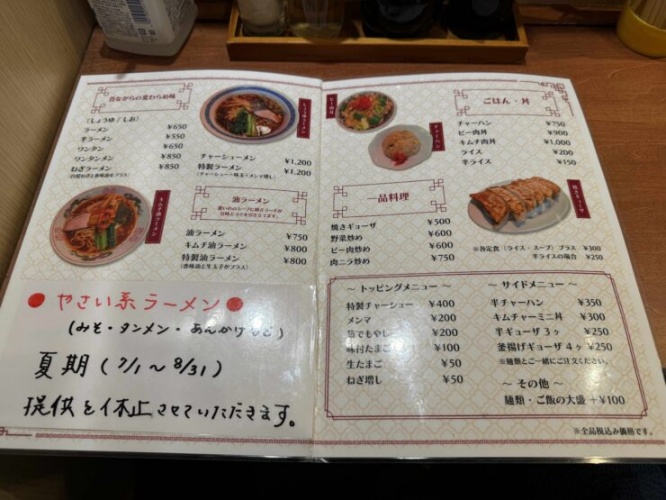 昔ながらの変わらぬ味
(しょうゆ/しお)
ラーメン ¥650
半ラーメン ¥550
ワンタン ¥650
ワンタンメン ¥850
ねぎラーメン ¥850
しょうゆラーメン
チャーシューメン ¥1,200
特製ラーメン ¥1,200
キムチ油ラーメン
油ラーメン
油ラーメン ¥750
キムチ油ラーメン ¥800
特製油ラーメン ¥800
(香味油と生玉子がプラス)
●やさい系ラーメン●
(みそ・タンメン・あんかけなど)
夏期(7/1〜8/31)
提供を休止させていただきます。
ビー肉丼
チャーハン
ごはん・丼
チャーハン ¥750
ビー肉丼 ¥900
キムチ肉丼 ¥1,000
ライス ¥200
半ライス ¥150
一品料理
焼きギョーザ ¥500
野菜炒め ¥600
ビー肉炒め ¥600
肉ニラ炒め ¥750
焼きギョーザ
※各定食(ライス・スープ)プラス ¥300
半ライスの場合 ¥250
〜トッピングメニュー〜
特製チャーシュー ¥400
メンマ ¥200
茹でもやし ¥200
味付たまご ¥100
生たまご ¥50
ねぎ増し ¥50
〜サイドメニュー〜
半チャーハン ¥350
キムチャーミニ丼 ¥300
半ギョーザ 3ヶ ¥250
釜揚げギョーザ 4ヶ ¥250
※麺類とご一緒にご注文ください。
〜その他〜
麺類・ご飯の大盛 +¥100
※全品税込み価格です。